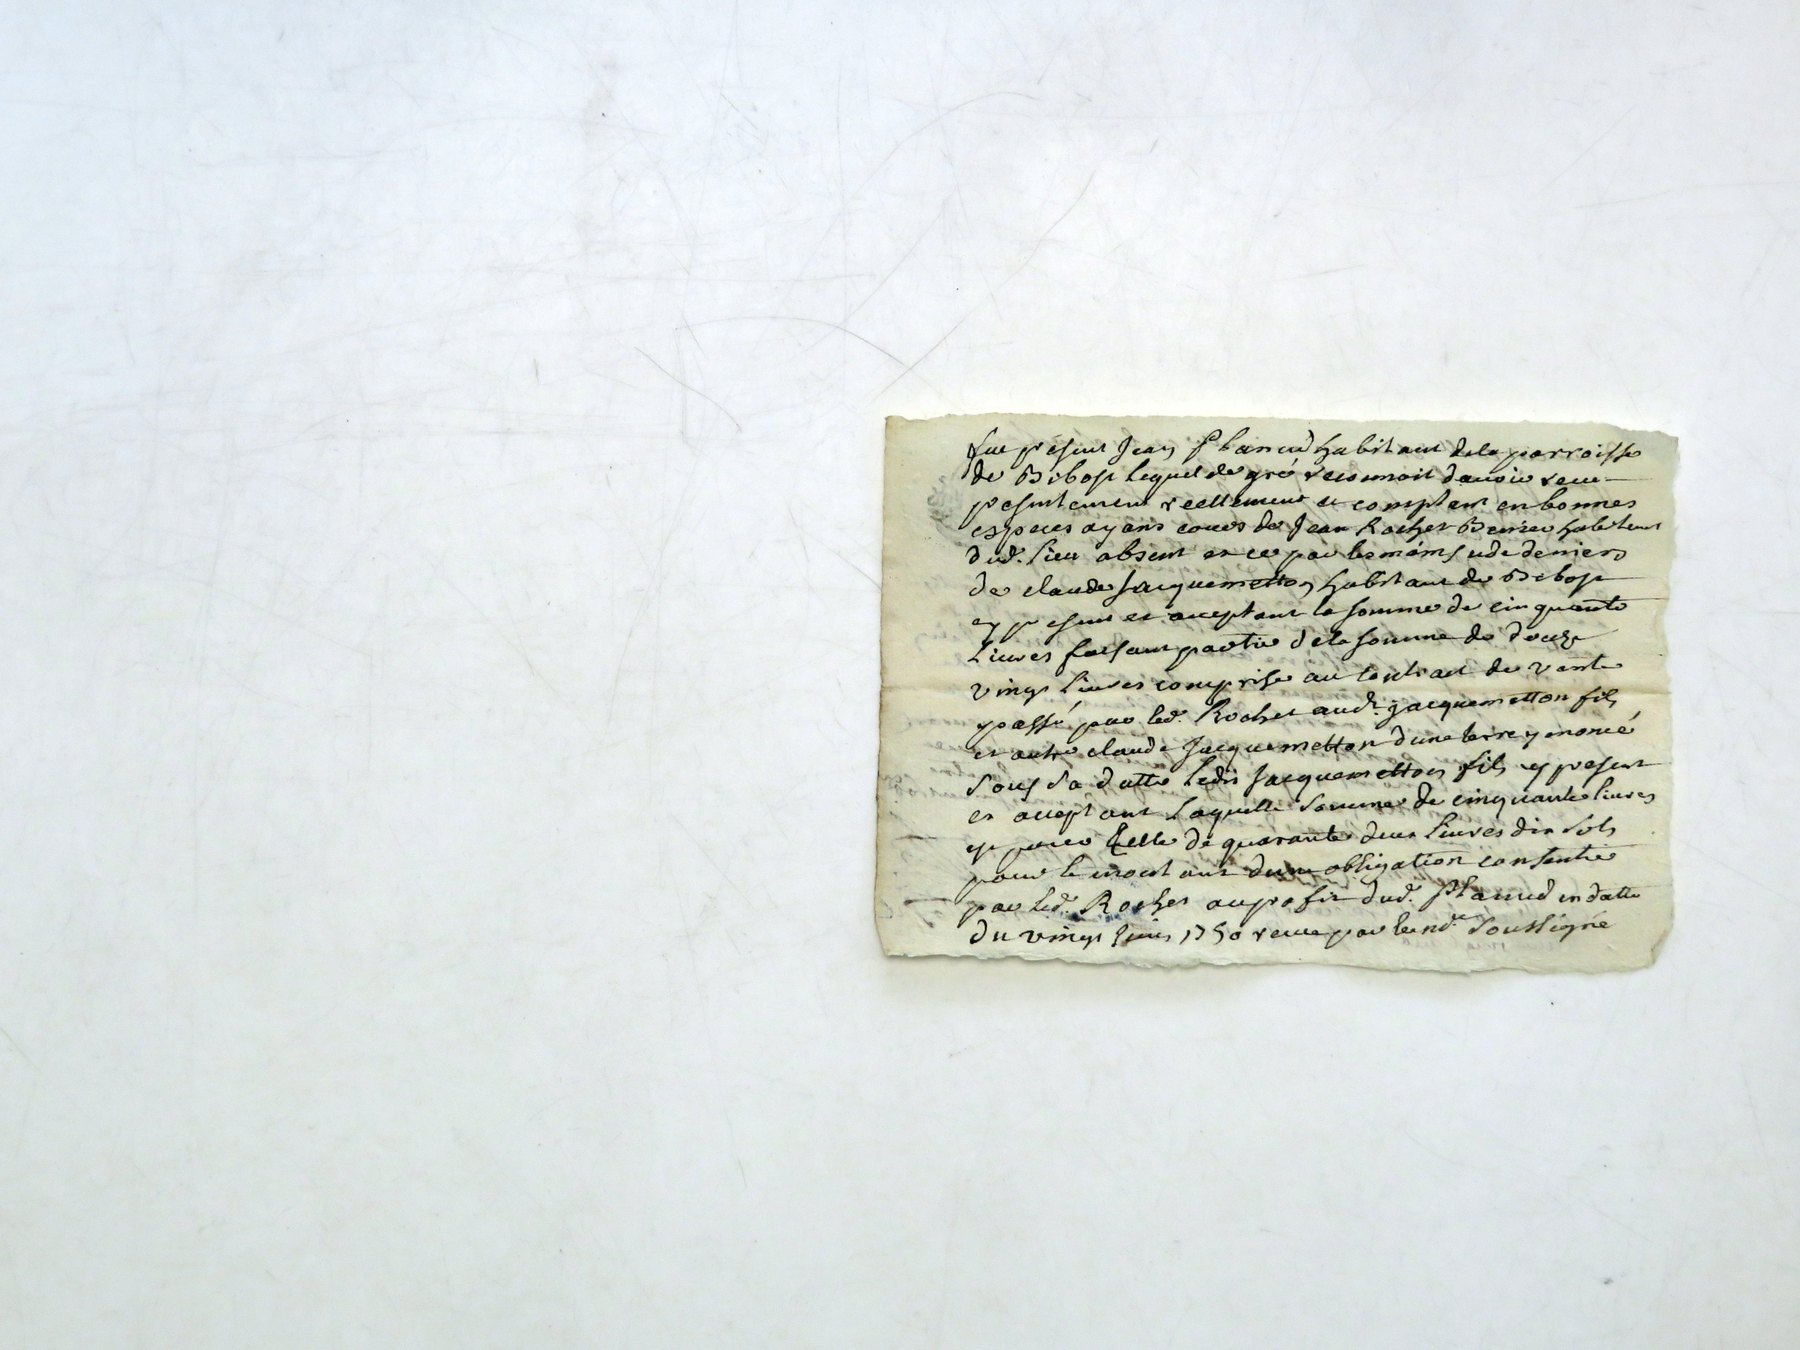 fut present Jean Planud habitant de la parroisse
de Bibost lequel de gré reconnoit davoir receu
presentement reellement et comptant en bonnes
especes ayans cours de Jean Rochet habitant
dud. lieu absent et ce par les mains et de deniers
de claude Jacquemetton habitant de Bibost
cy present et acceptant la somme de cinquante
Livres faisant partie de la somme de douze
vingt livres comprise au contrat de vente
passé par led. Rochet aud. Jacquemetton fils
et autre claude Jacquemetton dune terre y enoncé
sous sa datte ledit Jacquemetton fils cy present
et acceptant Laquelle somme de cinquante livres
est pour Celle de quarante deux livres dix sols
pour le montant dune obligation consentie
par led. Rochet au profit dud. Planud en datte
du vingt Juin 1750 receue par le nore soussigné